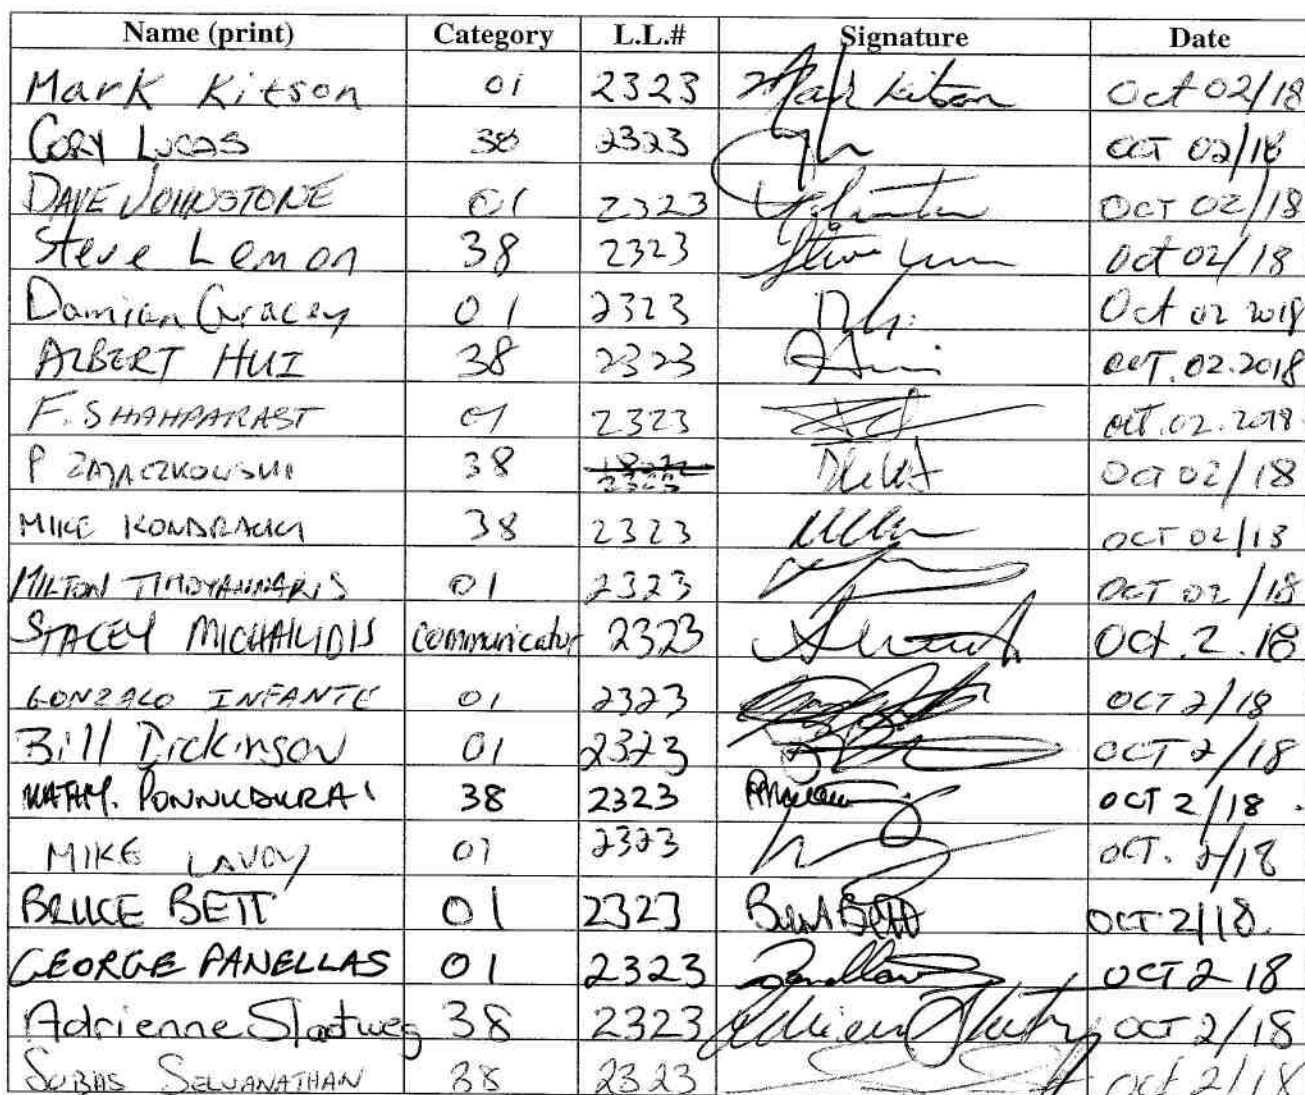 Name (print) Category L.L.# Signature Date
Mark Kitson 01 2323 Mark Kitson Oct 02/18
CORY LUCAS 38 2323 OCT 02/18
DAVE JOHNSTONE 01 2323 OCT 02/18
Steve Lemon 38 2323 Oct 02/18
Damian Gracey 01 2323 Oct 02 2018
ALBERT HUI 38 2323 OCT. 02.2018
F. SHAHPARAST 01 2323 OCT. 02. 2018
P ZAJACZKOWSKI 38 2323 Oct 02/18
MIKE KONDRACKI 38 2323 OCT 02/18
MILTON 01 2323 OCT 02/18
STACEY MICHAILIDIS communicator 2323 Oct. 2. 18
GONZALO INFANTE 01 2323 OCT 2/18
Bill Dickinson 01 2323 OCT 2/18
38 2323 OCT 2/18
MIKE LAVOY 01 2323 OCT. 2/18
BRUCE BETT 01 2323 OCT 2/18.
GEORGE PANELLAS 01 2323 OCT 2 18
Adrienne Slootweg 38 2323 OCT 2/18
SUBAS SELVANATHAN 38 2323 Oct 2/18